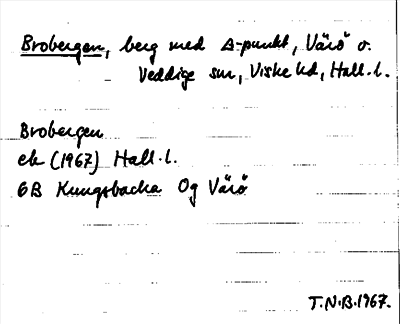 Brobergen, berg med Δ-punkt, Värö o.
Veddige snr, Viske hd, Hall. l.
Brobergen
ek (1967) Hall. l.
6B Kungsbacka Og Värö
T.N.B. 1967.